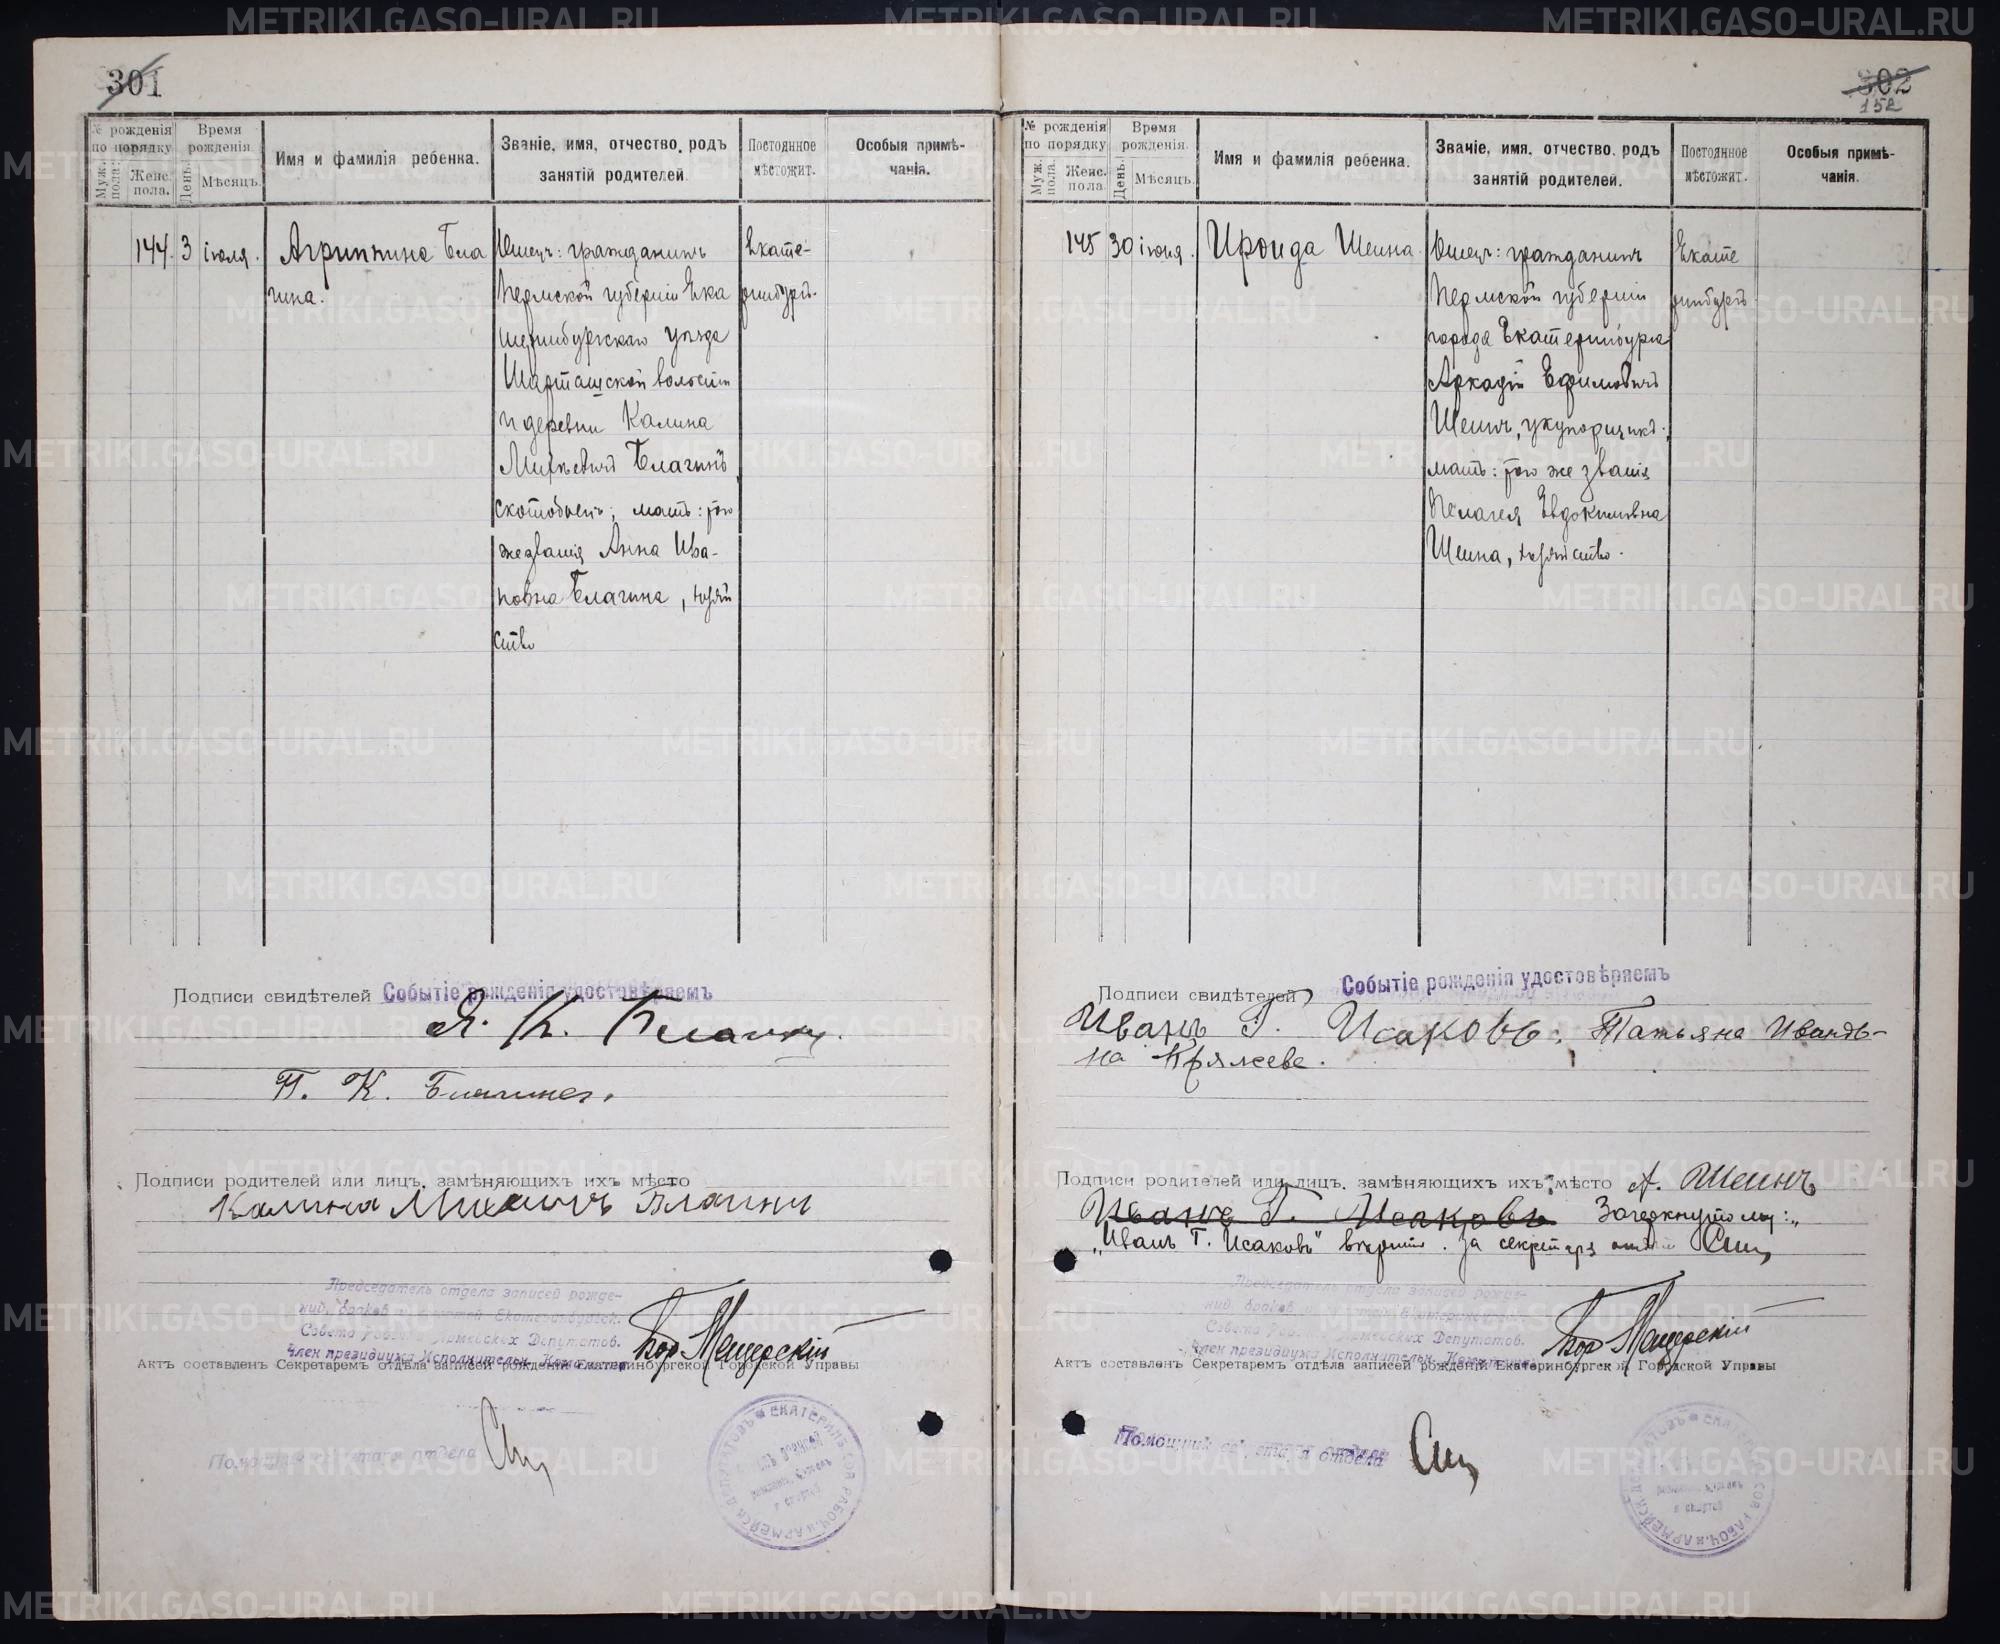 301
№ рожденія по порядку
Муж. пола.
Женс. пола.
Время рожденія.
День.
Мѣсяцъ.
Имя и фамилія ребенка.
Званіе, имя, отчество, родъ занятій родителей.
Постоянное мѣстожит.
Особыя примѣчанія.
144. 3 іюля.
Агриппина Бла
гина.
Отецъ: гражданинъ
Пермской губерніи Ека
теринбургскаго уѣзда
Шарташской волости
и деревни Калина
Михѣевичъ Благинъ
скотобоецъ; мать: того
же званія Анна Ива-
новна Благина, хозяй
ство
Екате-
ринбургъ.
Подписи свидѣтелей Событіе рожденія удостовѣряемъ
Я. К. Благинъ.
П. К. Благинъ.
Подписи родителей или лицъ, замѣняющихъ ихъ мѣсто
Калина Михеичъ Благинъ
Председатель отдела записей рожде-
ний, браков и смертей Екатеринбургск.
Совета Рабочих и Армейских Депутатов.
Член президиума Исполнительн. Комитета
Бор. Мещерскій
Актъ составленъ Секретаремъ отдѣла записей рожденій Екатеринбургской Городской Управы
Помощник секретаря отдела
302
152
№ рожденія по порядку
Муж. пола.
Женс. пола.
Время рожденія.
День.
Мѣсяцъ.
Имя и фамилія ребенка.
Званіе, имя, отчество, родъ занятій родителей.
Постоянное мѣстожит.
Особыя примѣчанія.
145 30 іюня.
Ироида Шеина.
Отецъ: гражданинъ
Пермской губерніи
города Екатеринбурга
Аркадій Ефимовичъ
Шеинъ, укупорщикъ;
мать: того же званія
Пелагея Евдокимовна
Шеина, хозяйство.
Екате
ринбургъ
Подписи свидѣтелей Событіе рожденія удостовѣряемъ
Иванъ Г. Исаковъ; Татьяна Ивановь-
на Кряжева.
Подписи родителей или лицъ, замѣняющихъ ихъ мѣсто А. Шеинъ
Иванъ Г. Исаковъ Зачеркнутому:
„Иванъ Г. Исаковъ" вѣрить. За секретаря
Председатель отдела записей рожде-
ний, браков и смертей Екатеринбургск.
Совета Рабочих и Армейских Депутатов.
Член президиума Исполнительн. Комитета
Бор. Мещерскій
Актъ составленъ Секретаремъ отдѣла записей рожденій Екатеринбургской Городской Управы
Помощник секретаря отдела
METRIKI.GASO-URAL.RU